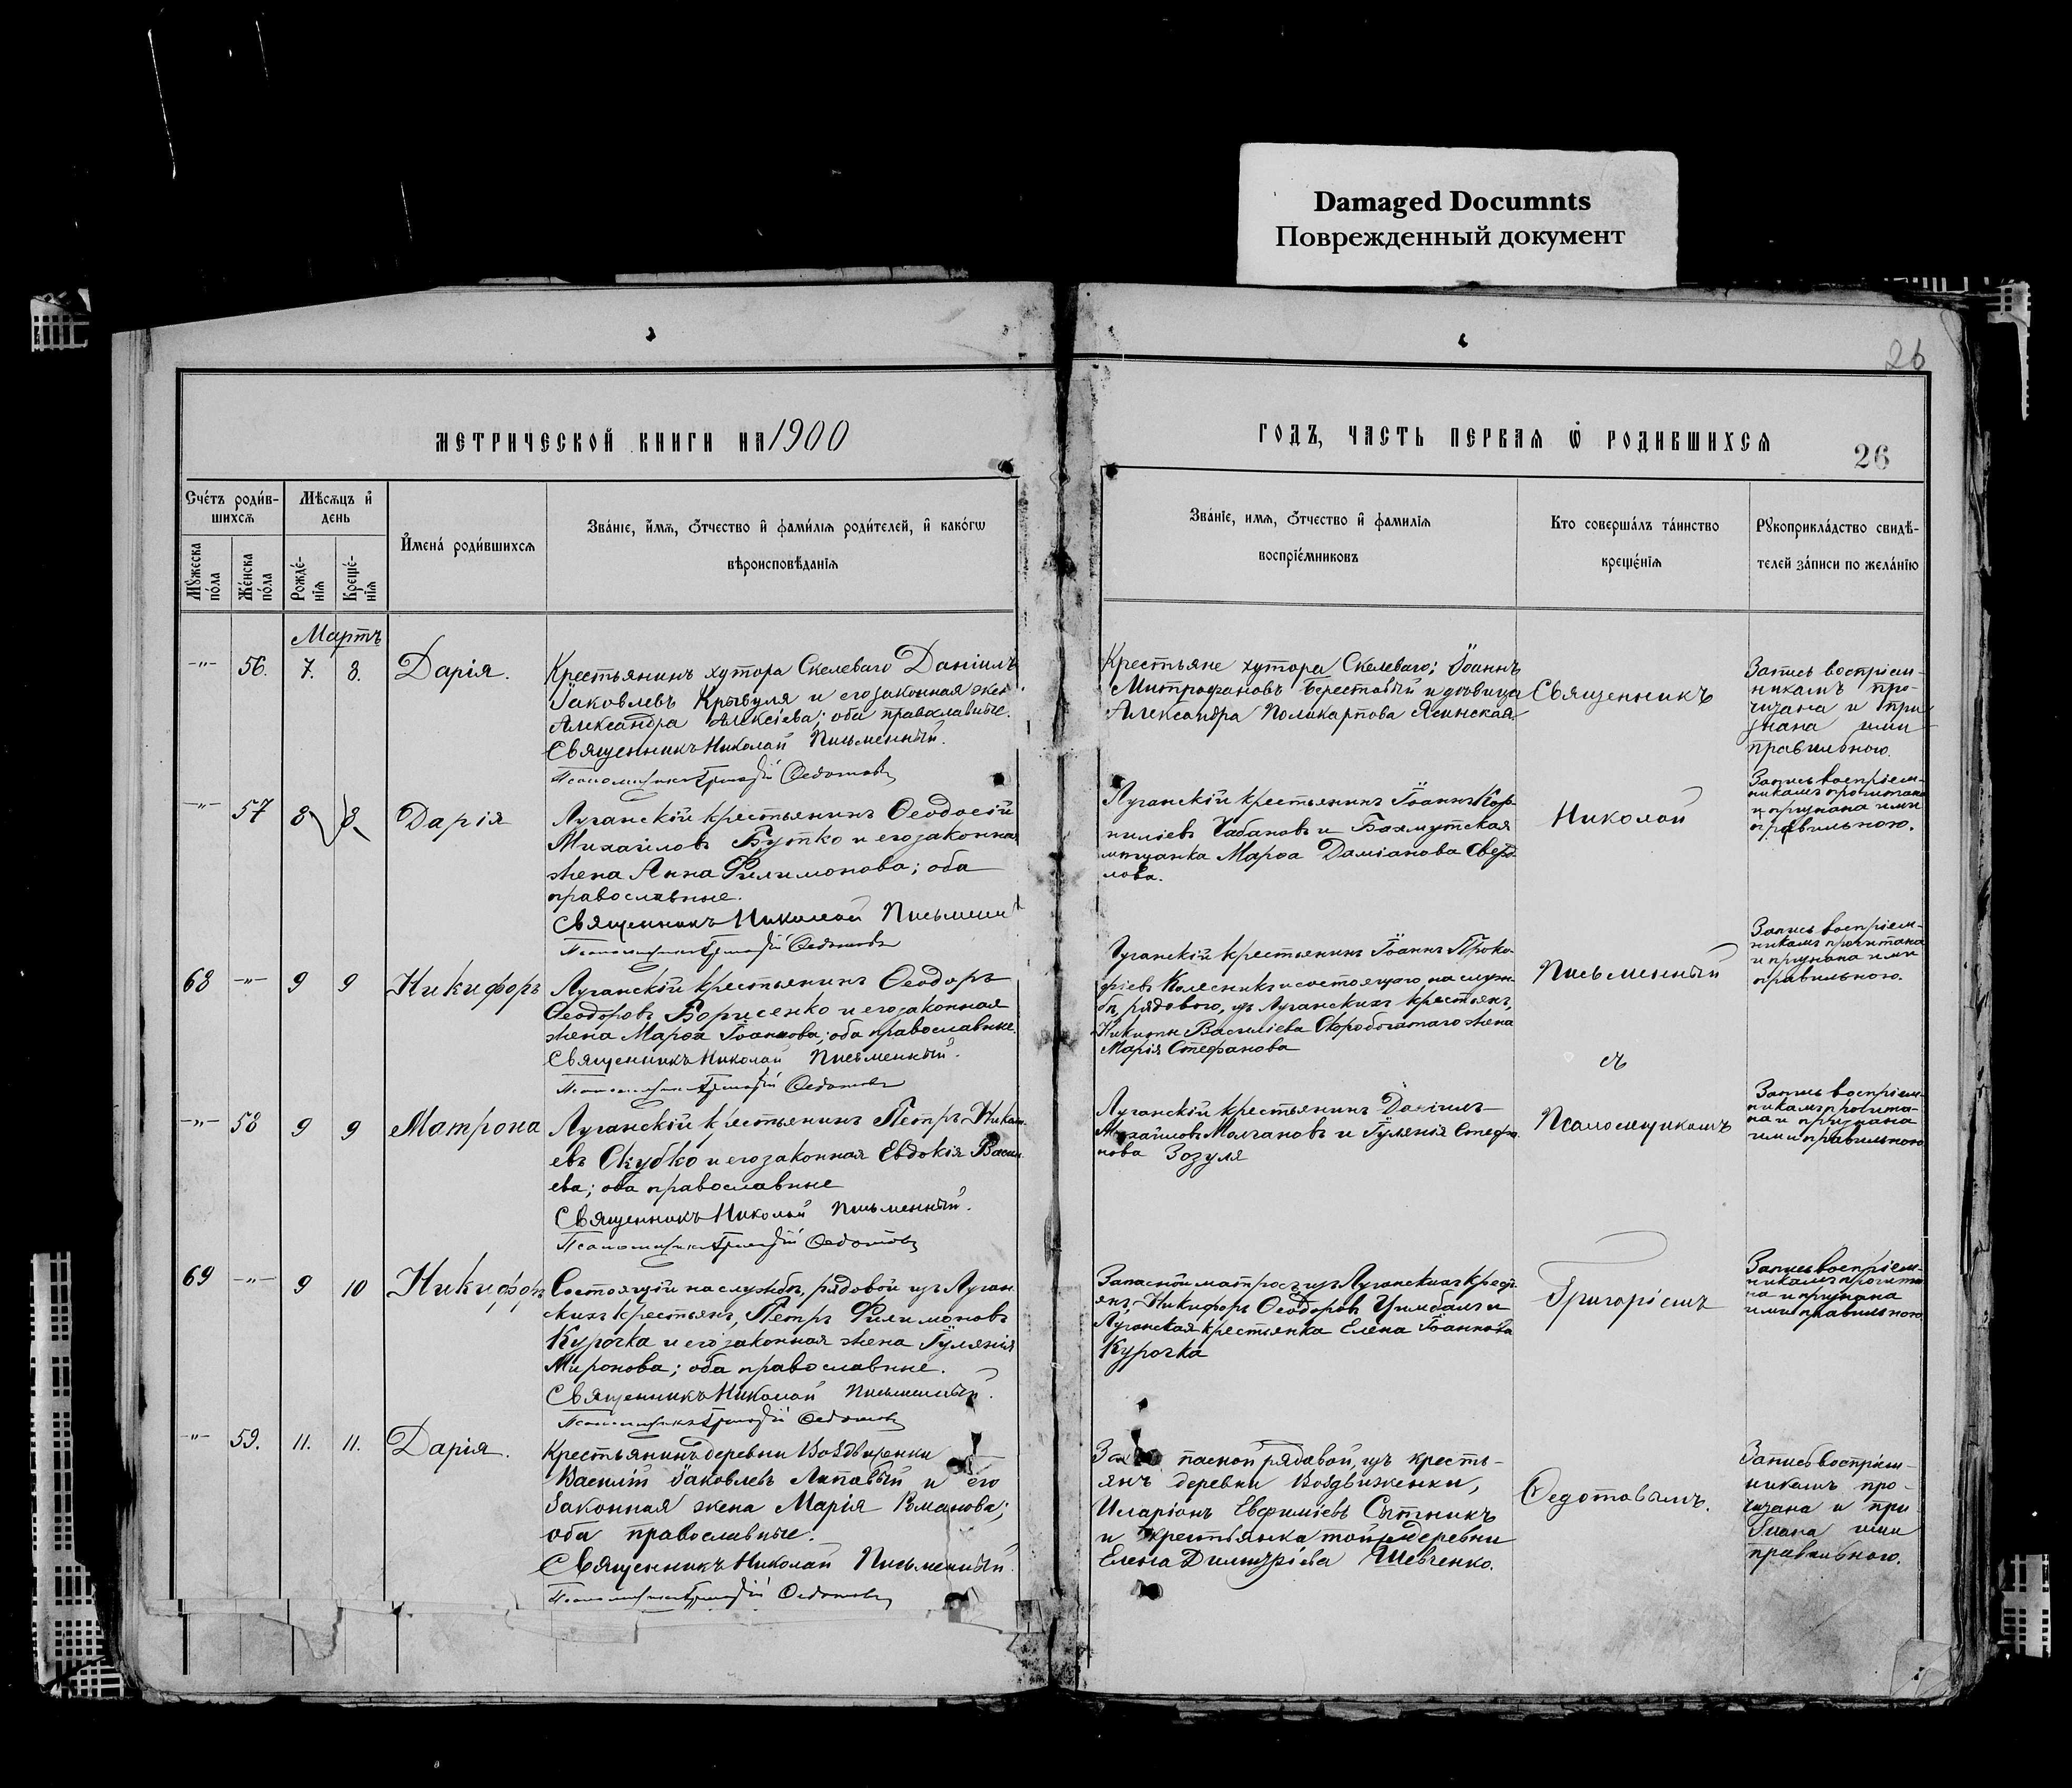 Damaged Documnts
Поврежденный документ
26
МЕТРИЧЕСКОЙ КНИГИ НА 1900
ГОДЪ, ЧАСТЬ ПЕРВАЯ Ѿ РОДИВШИХСЯ
26
Счéтъ роди́в-
шихсѧ
Мꙋжеска
пóла
Жéнска
пóла
Мѣсѧцъ и҆
день
Рождé-
нїѧ
Крещé-
нїѧ
И҆мена́ роди́вшихсѧ
Зва́нїе, и҆́мѧ, ѻ҆́тчество и҆ фами́лїѧ роди́телей, и҆ како́гѡ
вѣроисповѣ́данїѧ
Зва́нїе, имѧ, ѻ҆́тчество и҆ фами́лїѧ
воспрїе́мниковъ
Кто соверша́лъ та́инство
креще́нїѧ
Рꙋкоприкла́дство свидѣ́-
телей за́писи по жела́нїю
Мартъ
-"- 56. 7. 8. Дарія.
Крестьянинъ хутора Скелеваго Даніилъ
Іаковлевъ Кривуля и его законная жена
Александра Алексіева; оба православные.
Священникъ Николай Письменный.
Псаломщикъ Григорій Федотовъ
Крестьяне хутора Скелеваго: Іоаннъ
Митрофановъ Берестовый и девица
Александра Поликарпова Ясинская
Священникъ
Запись воспріем-
никамъ про-
читана и при
знана ими
правильною.
-"- 57 8 8 Дарія
Луганскій крестьянинъ Ѳеодосій
Михаиловъ Бутко и его законная
жена Анна Филимонова; оба
православные.
Священникъ Николай Письменный
Псаломщикъ Григорій Федотовъ
Луганскій крестьянинъ Іоаннъ Кор-
ниліевъ Чабановъ и Бахмутская
мѣщанка Марѳа Даміанова Сверд-
лова.
Николай
Запись воспріем-
никамъ прочитана
и признана ими
правильною.
68 -"- 9 9 Никифоръ
Луганскій крестьянинъ Ѳеодоръ
Ѳеодоровъ Борисенко и его законная
жена Марѳа Іоаннова; оба православные.
Священникъ Николай Письменный.
Псаломщикъ Григорій Федотовъ
Луганскій крестьянинъ Іоаннъ Проко-
фіевъ Колесникъ и состоящаго на служ-
бѣ, рядового, изъ Луганскихъ крестьянъ,
Никиты Василіева Скоробогатаго жена
Марія Стефанова
Письменный
Запись воспріем-
никамъ прочитана
и признана ими
правильною.
съ
-"- 58 9 9 Матрона
Луганскій крестьянинъ Петръ
евъ Скубко и его законная Евдокія Васили
ева; оба православные
Священникъ Николай Письменный.
Псаломщикъ Григорій Федотовъ
Луганскій крестьянинъ Даніилъ
Михаиловъ Молчановъ и Іуліянія Стефа-
нова Зозуля
Псаломщикомъ
Запись воспріем-
никамъ прочита-
на и признана
ими правильною
69 -"- 9 10 Никифоръ
Состоящій на службѣ, рядовой изъ Луган-
скихъ крестьянъ, Петръ Филимоновъ
Курочка и его законная жена Іуліянія
Миронова; оба православные.
Священникъ Николай Письменный.
Псаломщикъ Григорій Федотовъ
Запасной матросъ изъ Луганскихъ кресть-
янъ, Никифоръ Ѳеодоровъ Цимбалъ и
Луганская крестьянка Елена Іоаннова
Курочка
Григоріемъ
Запись воспріем-
никамъ прочита
на и признана
ими правильною.
-"- 59. 11. 11. Дарія.
Крестьянинъ деревни Воздвиженки
Василій Іаковлевъ Липовый и его
законная жена Марія Романова;
оба православные.
Священникъ Николай Письменный.
Псаломщикъ Григорій Федотовъ
За пасной рядовой, изъ кресть-
янъ деревни Воздвиженки,
Иларіонъ Евфиміевъ Сытникъ
и крестьянка той же деревни
Елена Димитріева Шевченко.
Ѳедотовымъ.
Запись воспріем-
никамъ про-
читана и при
знана ими
правильною.